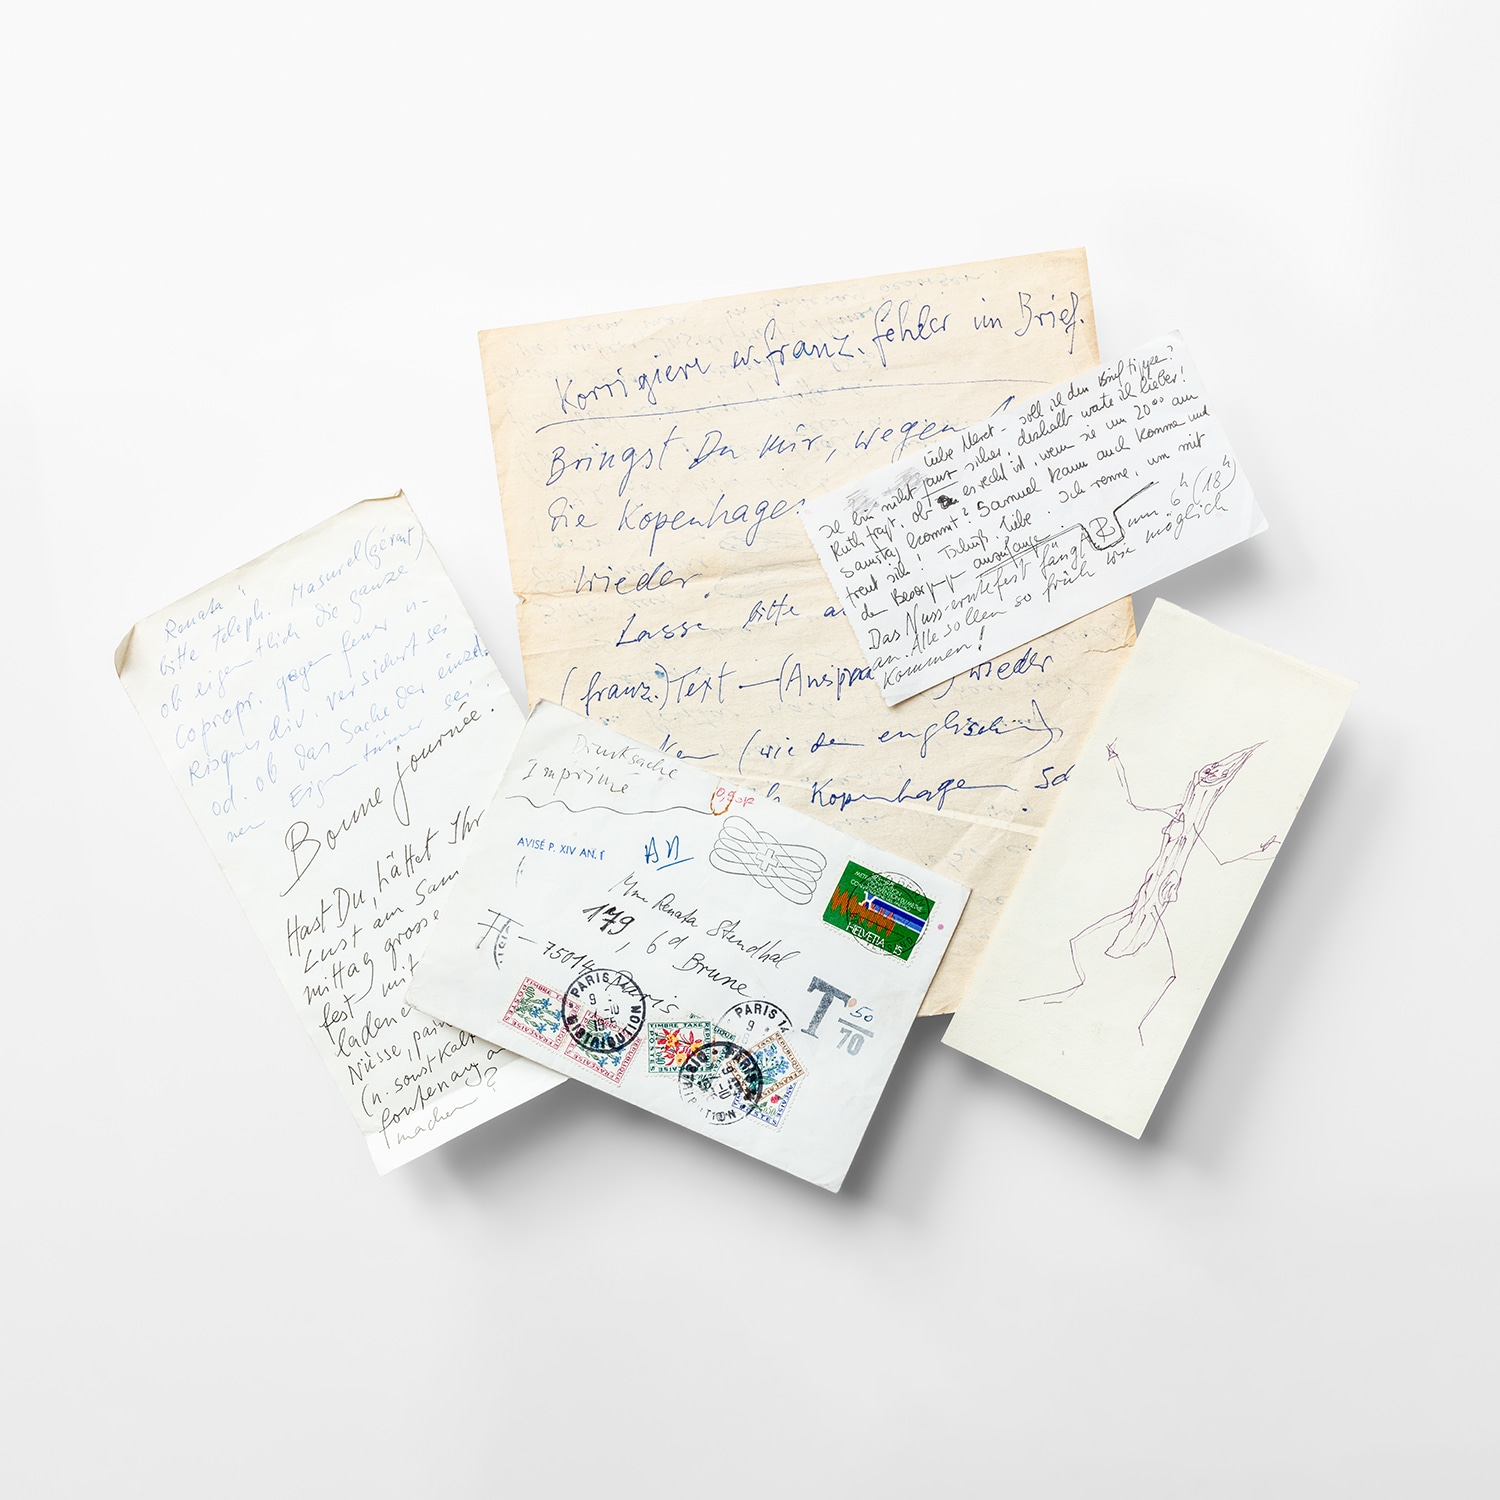 Korrigiere ev. franz. Fehler im Brief.
Bringst Du mir, wegen
die Kopenhagen
wieder.
Lasse bitte
(franz.) Text – (Anspra wieder
(wie den englischen)
Kopenhagen
Liebe Meret – soll ich den Brief tippen?
Ich bin nicht ganz sicher, deshalb warte ich lieber!
Ruth fragt, ob es recht ist, wenn sie um 20°° am
Samstag kommt? Samuel kann auch kommen und
freut sich! Tschüß, Liebe. Ich renne, um mit
den Besorgungen anzufangen. R.
Das Nuss-erntefest fängt um 6h (18h)
an. Alle sollen so früh wie möglich
kommen!
Renata:
bitte teleph. Masurel (gérant)
ob eigentlich die ganze
Copropr. gegen Feuer u-
Risques div. versichert sei
od. ob das Sache der einzel-
nen Eigentümer sei
Bonne journée.
Hast Du, hättet Ihr
Lust am Sam
mittag grosse
fest mit
laden
Nüsse, pain
(u. sonst kalt
fontenay a
machen?
Drucksache
Imprimé
0,90
AVISÉ P. XIV AN. 1
AN
HELVETIA 15
Mme Renata Stendhal
179, Bd Brune
75014 Paris
T 50
70
TIMBRE TAXE
REPUBLIQUE FRANÇAISE
PARIS 14
9
DISTRIBUTION
TIMBRE TAXE
PARIS 14
9